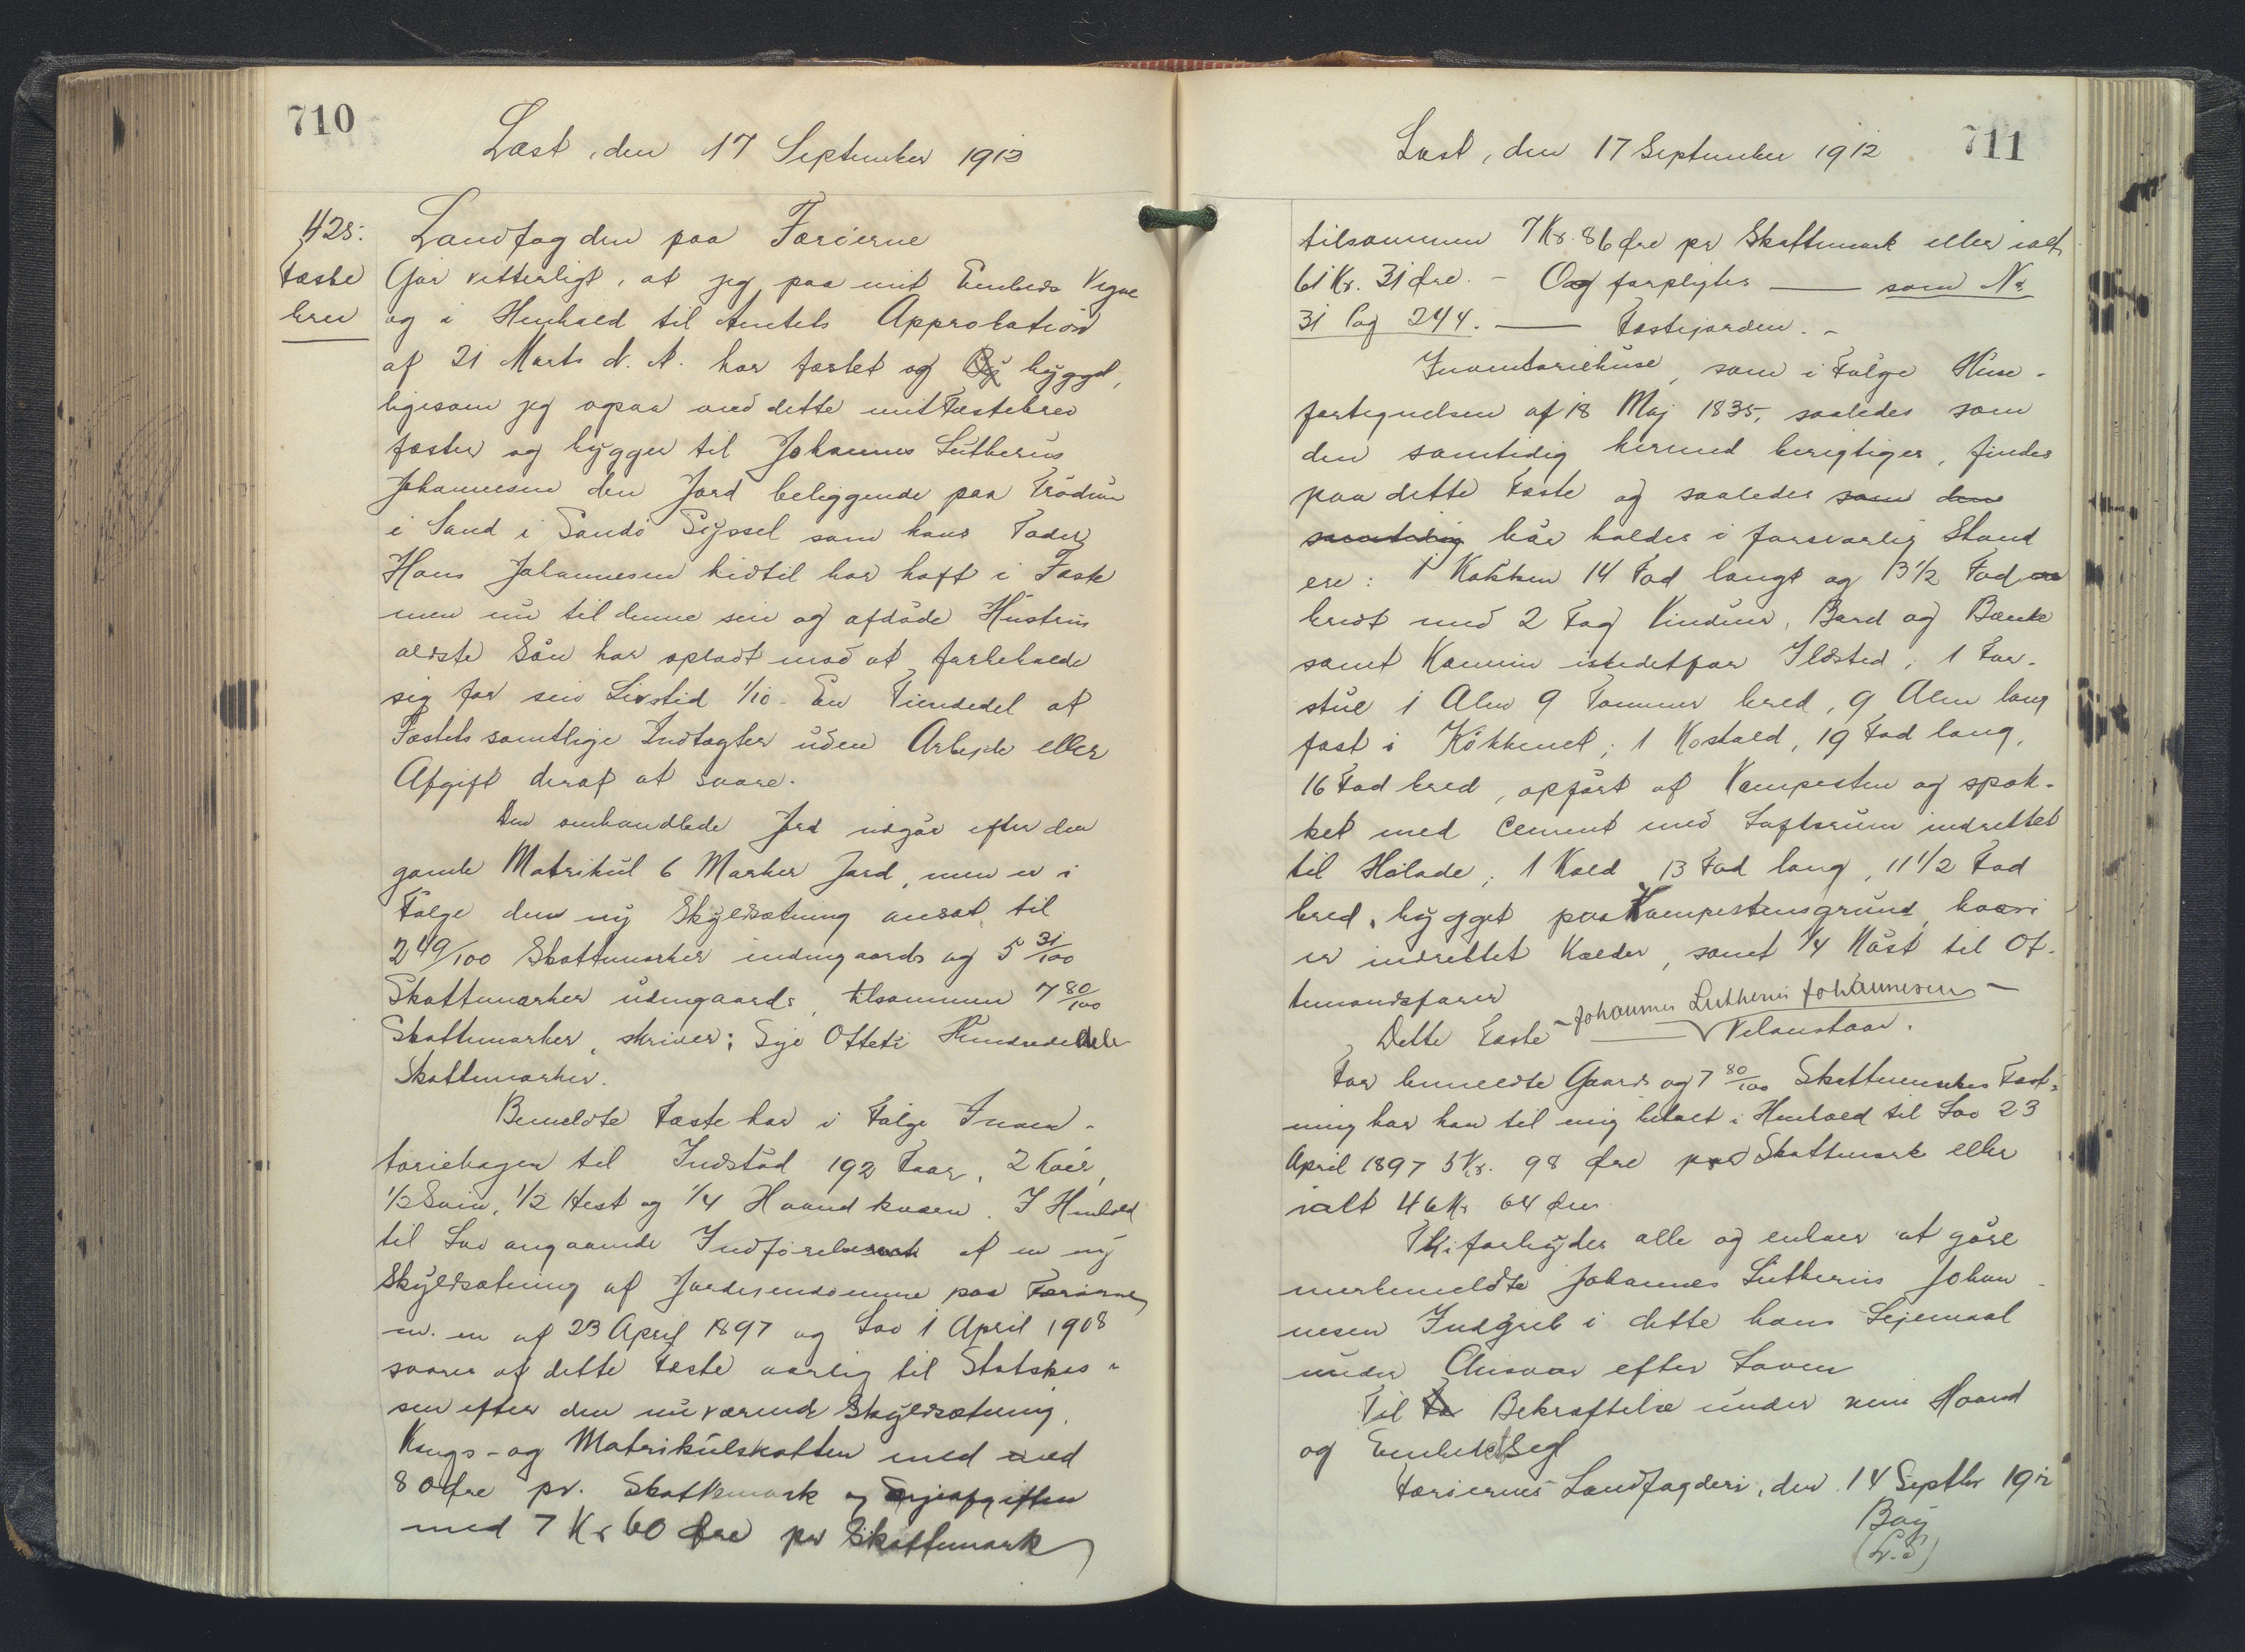 710
Læst, den 17 September 1913
428.
Fæste
brev
Landfogden paa Færöerne
Gör vitterligt, at jeg paa mit Embeds Vegne
og i Henhold til Amtets Approbation
af 21 Marts d. A. har fæstet og By bygget,
ligesom jeg ogsaa med dette mit Fæstebrev
fæster og bygger til Johannes Lutherus
Johannesen den Jord beliggende paa Trödum
i Sand i Sandö Syssel som hans Fader
Hans Johannesen hidtil har haft i Fæste
men nu til denne sin og afdöde Hustrus
ældste Sön har opladt mod at forbeholde
sig for sin Livstid 1/10 - En Tiendedel af
Fæstets samtlige Indtægter uden Arbejde eller
Afgift deraf at svare.
Den omhandlede Jord udgör efter den
gamle Matrikul 6 Marker Jord, men er i
Fölge den ny Skyldsætning ansat til
2 49/100 Skattemarker indengaards og 5 31/100
Skattemarker udengaards, tilsammen 7 80/100
Skattemarker, skriver: Syv Otteti Hundrededele
Skattemarker.
Bemeldte Fæste har i Fölge Inven-
tariebogen til Indstöd 192 Faar, 2 Köer,
1/2 Svin, 1/2 Hest og 1/4 Haandkværn. I Henhold
til Lov angaaende Indförelse af en ny
Skyldsætning af Jordejendomme paa Færöerne
m. m. af 23 April 1897 og Lov 1 April 1908
svares af dette Fæste aarlig til Statskas-
sen efter den nuværende Skyldsætning.
Vengs- og Matrikulskatten med med
80 Øre pr. Skattemark og Terjeafgiften
med 7 Kr 60 Øre pr Skattemark
711
Læst, den 17 September 1912
tilsammen 7 Kr. 86 Øre pr Skattemark eller ialt
61 Kr. 31 Øre. - Og forpligter — som No
31 Pag 244. — Fæstejorden. -
Inventariehuse, som i Fölge Huse-
fortegnelsen af 18 Maj 1835, saaledes som
den samtidig hermed berigtiges, findes
paa dette Fæste og saaledes som den
samtidig bör holdes i forsvarlig Stand
ere: 1 Kökken 14 Fod langt og 13 1/2 Fod
bredt med 2 Fag Vinduer, Bord og Bænke
samt Kamin istedetfor Ildsted; 1 For-
stue 1 Alen 9 Tommer bred, 9 Alen lang
fast i Kökkenet; 1 Kostald, 19 Fod lang,
16 Fod bred, opfört af Kampesten og spæk-
ket med Cement med Loftsrum indrettet
til Hölade; 1 Kold 13 Fod lang, 11 1/2 Fod
bred, bygget paa Kampestensgrund, hvori
er indrettet Kælder, samt 1/4 Nöst til Ot-
temandsfarer
Dette Fæste - Johannes Lutherus Johannesen - Velanstaar.
For bemeldte Gaards og 7 80/100 Skattemarkes Fæst-
ning har han til mig betalt i Henhold til Lov 23
April 1897 5 Kr. 98 Øre pr Skattemark eller
ialt 46 Kr 64 Øre
Thi forbydes alle og enhver at göre
merbemeldte Johannes Lutherus Johan-
nesen Indgreb i dette hans Lejemaal
under Ansvar efter Loven
Til Bekræftelse under min Haand
og Embedssegl
Færöernes Landfogderi, den 14 Septbr 1912
Böy
(L.S)